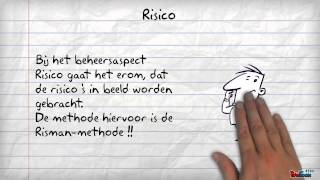 Risico
Bij het beheersaspect
Risico gaat het erom, dat
de risico's in beeld worden
gebracht.
De methode hiervoor is de
Risman-methode !!